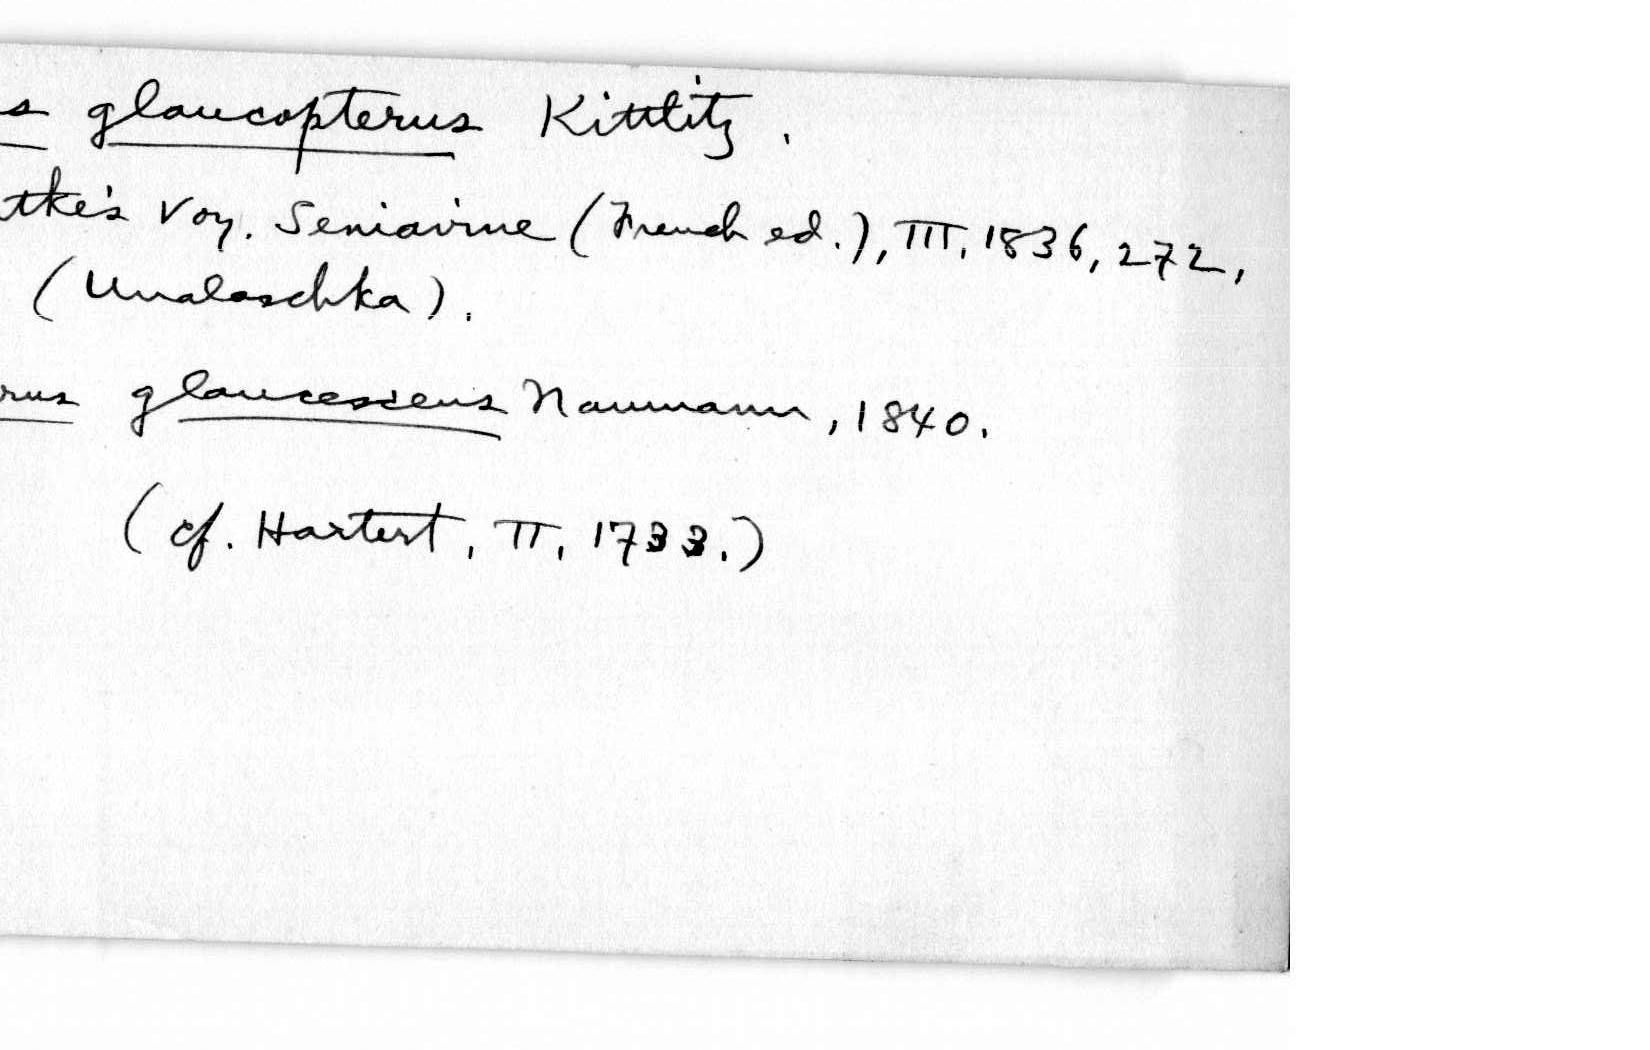 s glaucopterus Kittlitz.
tke's Voy. Seniavine (French ed.), III, 1836, 272,
(Unalaschka).
rus glaucescens Naumann, 1840.
(cf. Hartert, II, 1733.)